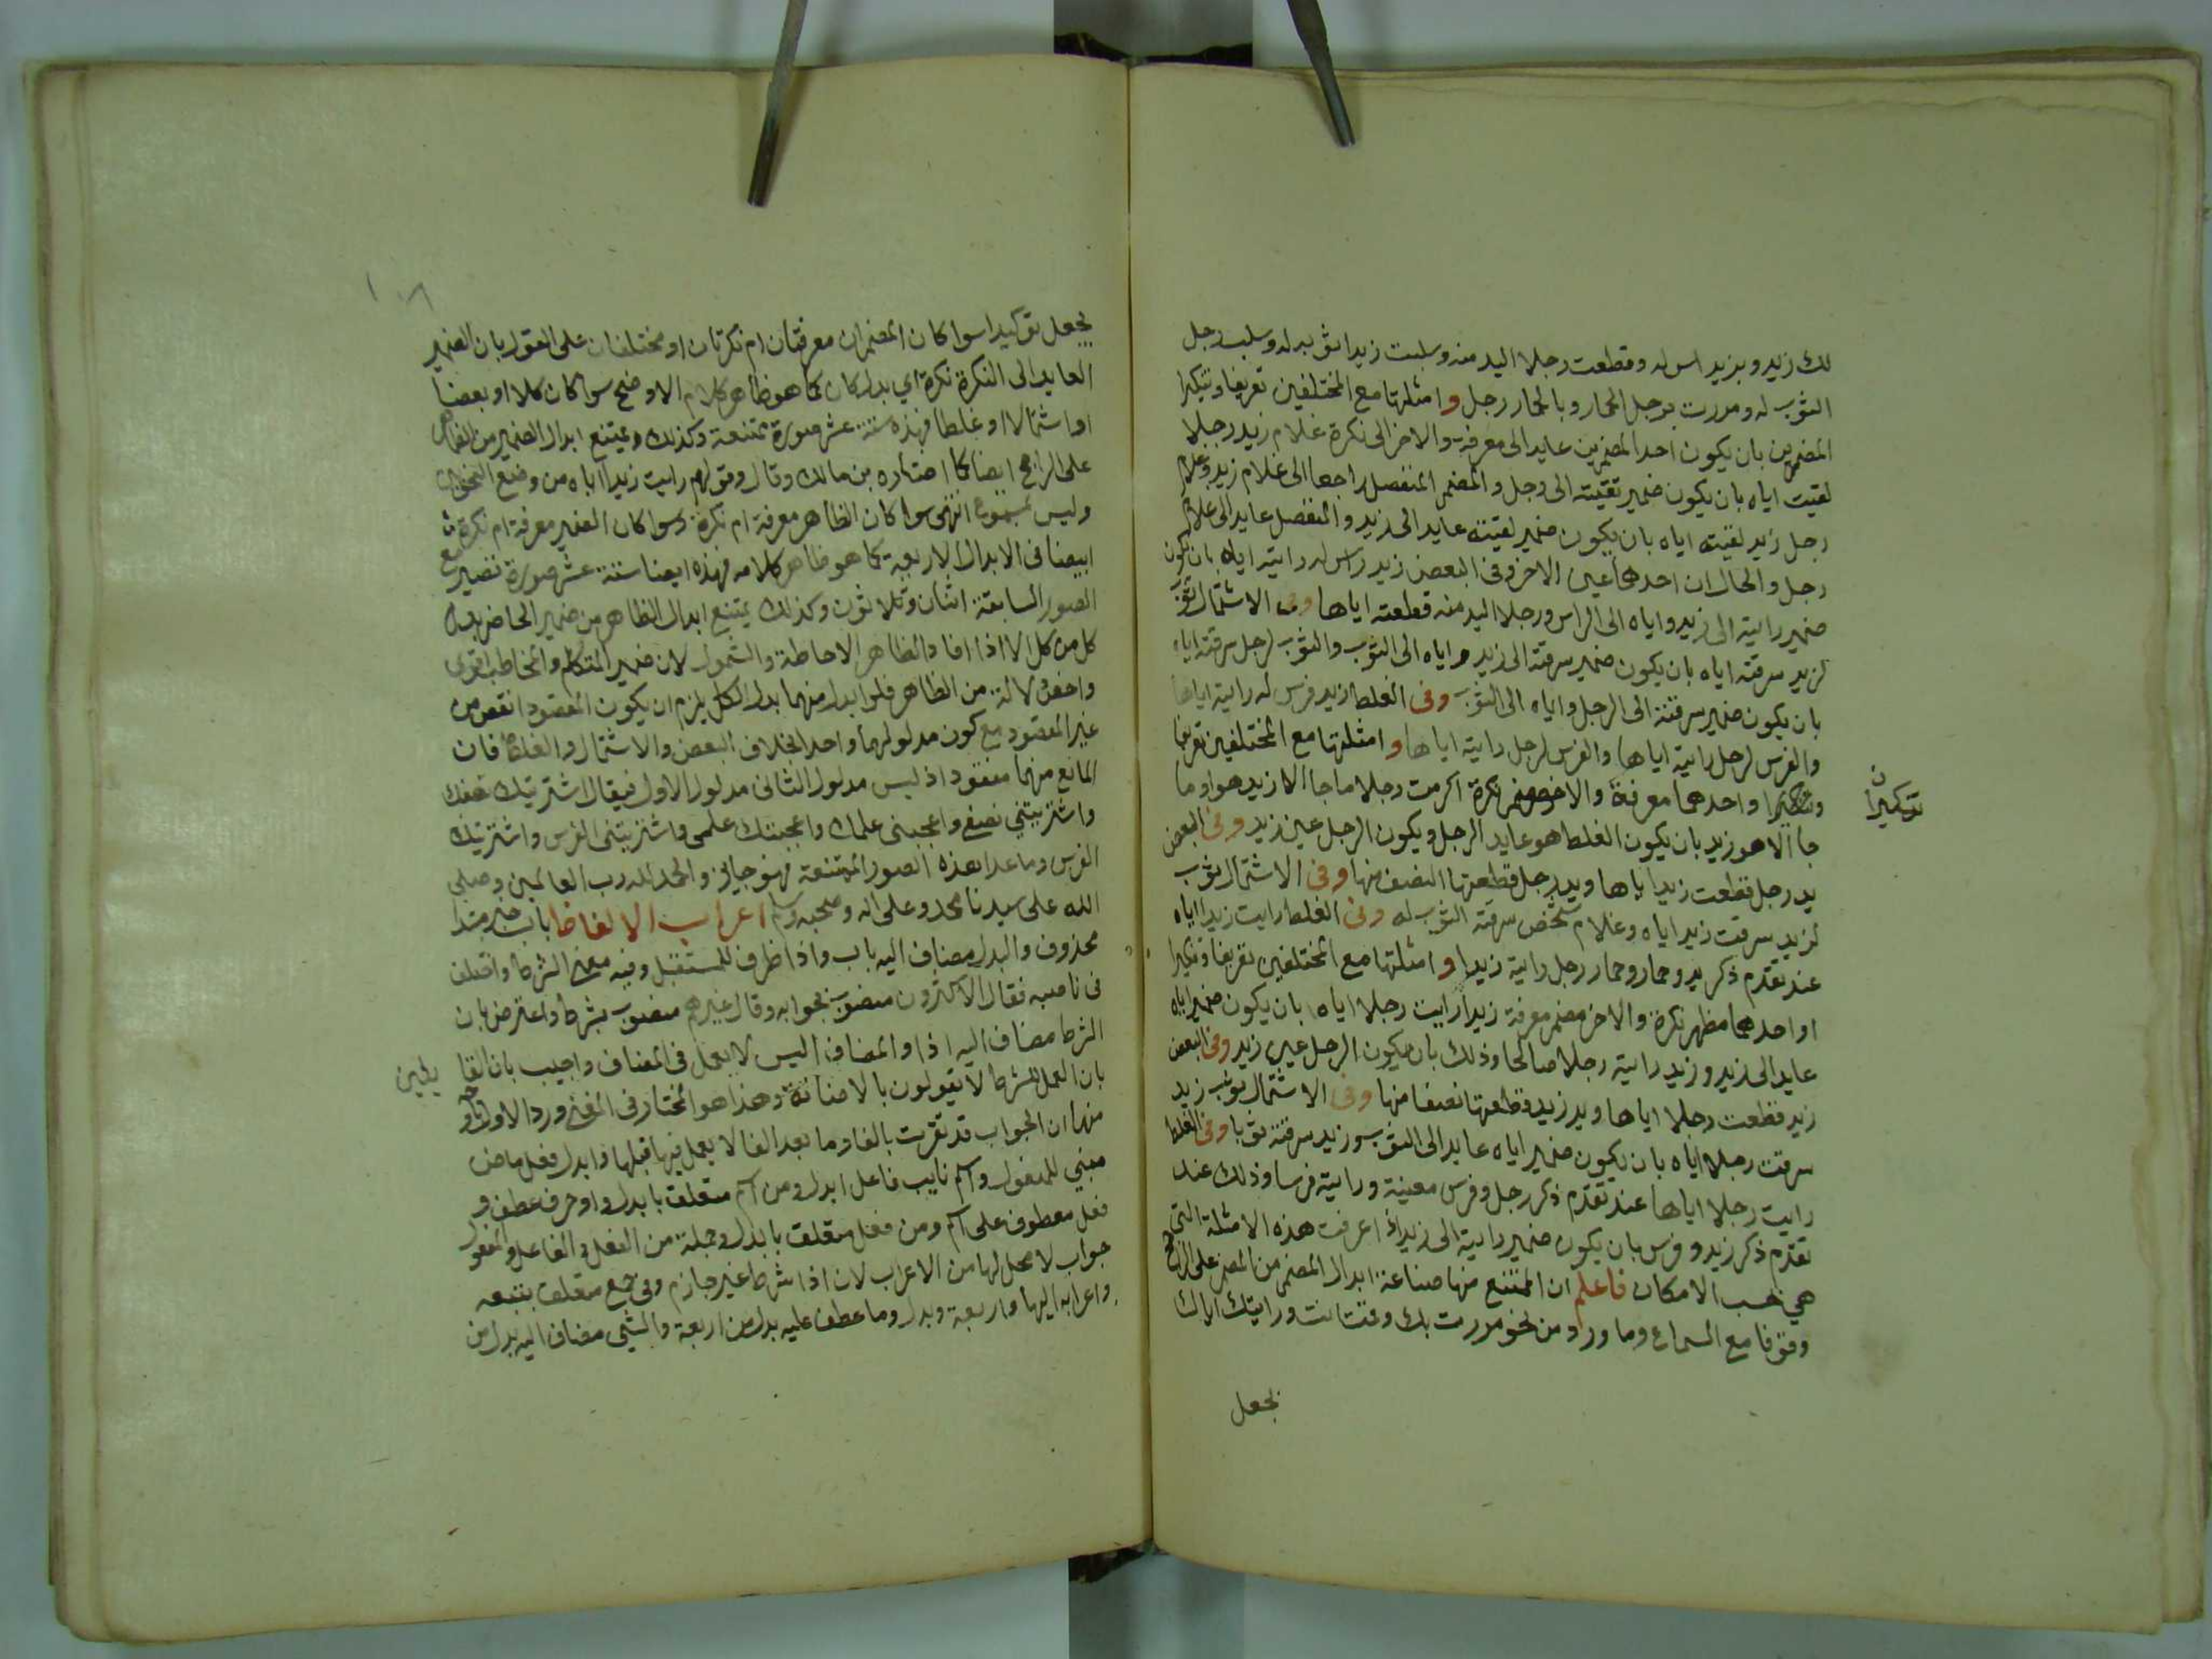 لك زيد وبزيد اس له وقطعت رجلا اليد منه وسلبت زيدا ثوبه له وسلب رجل
الثوب له ومررت برجل الحمار وبالحمار رجل وامثلتها مع المختلفين تعريفا وتنكيرا
المضمرين بان يكون احد المضمرين عايد الى معرفة والاخر الى نكرة غلام زيد رجلا
لقيت اياه بان يكون ضمير لقيته الى رجل والمضمر المنفصل راجعا الى غلام زيد وغلام
رجل زيد لقيته اياه بان يكون ضمير لقيته عايد الى زيد والمنفصل عايد الى غلام
رجل والحال ان احدهما عين الاخر وفي البعض زيد راس له رايته اياه بان يكون
ضمير رايته الى زيد واياه الى الراس ورجلا اليد منه قطعته اياها وفي الاشتمال ثوب
لزيد سرقته اياه بان يكون ضمير سرقته الى زيد واياه الى الثوب والثوب لرجل سرقته اياه
بان يكون ضمير سرقته الى الرجل واياه الى الثوب وفي الغلط زيد فرس له رايته اياها
والفرس لرجل رايته اياها والفرس لرجل رايته اياها وامثلتها مع المختلفين تعريفا
واحدهما معرفة والاخر نكرة اكرمت رجلا ما جا الا زيد هو او ما
تنكيرا
جا الا هو زيد بان يكون الغلط هو عايد الرجل ويكون الرجل عين زيد وفي البعض
يد رجل قطعت زيدا اياها ويد رجل قطعتها النصف منها وفي الاشتمال ثوب
لزيد سرقت زيدا اياه وغلام شخص سرقته الثوب له وفي الغلط رايت زيدا اياه
عند تقدم ذكر يد وحمار وحمار رجل رايته زيدا وامثلتها مع المختلفين تعريفا وتنكيرا
او احدهما مظهر نكرة والاخر مضمر معرفة زيدا رايت رجلا اياه بان يكون ضمير اياه
عايد الى زيد وزيد رايته رجلا صالحا وذلك بان يكون الرجل عين زيد وفي البعض
زيد قطعت رجلا اياها ويد زيد قطعتها نصفا منها وفي الاشتمال ثوب زيد
سرقت رجلا اياه بان يكون ضمير اياه عايد الى الثوب وزيد سرقته ثوبا وفي الغلط
رايت رجلا اياها عند تقدم ذكر رجل وفرس معينة ورايته فرسا وذلك عند
تقدم ذكر زيد وفرس بان يكون ضمير رايته الى زيد اذا عرفت هذه الامثلة التي
هي حسب الامكان فاعلم ان الممتنع منها صناعة ابدال المضمر من المضمر على الراجح
وقوفا مع السماع وما ورد من نحو مررت بك وقمت انت ورايتك اياك
بجعل
بجعل توكيدا سوا كان المضمران معرفتان ام نكرتان او مختلفان على القول بان الضمير
العايد الى النكرة نكرة اي بدل كان كما هو ظاهر كلام الاوضح سوا كان كلا او بعضا
او اشتمالا او غلطا فهذه ستة عشر صورة ممتنعة وكذلك ويمتنع ابدال الضمير من الظاهر
على الراجح ايضا كما اختاره بن مالك وقال وقولهم رايت زيدا اياه من وضع النحويين
وليس بمسموع انتهى سوا كان الظاهر معرفة ام نكرة وسوا كان الضمير معرفة ام نكرة
ايضا في الابدال الاربعة كما هو ظاهر كلامه فهذه ايضا ستة عشر صورة تصير مع
الصور السابقة اثنان وثلاثون وكذلك يمتنع ابدال الظاهر من ضمير الحاضر بدل
كل من كل الا اذا افاد الظاهر الاحاطة والشمول لان ضمير المتكلم والمخاطب اقوى
واخص دلالة من الظاهر فلو ابدل منهما بدل الكل يلزم ان يكون المقصود انقص من
غير المقصود مع كون مدلولهما واحد بخلاف البعض والاشتمال والغلط فان
المانع منهما مفقود اذ ليس مدلول الثاني مدلول الاول فيقال اشتريتك نصفك
واشتريتني نصفي واعجبني علمك واعجبتك علمي واشتريتني الفرس واشتريتك
الفرس وما عدا هذه الصور الممتنعة فهو جايز والحمد لله رب العالمين وصلى
الله على سيدنا محمد وعلى اله وصحبه وسلم اعراب الالفاظ باب خبر مبتدا
محذوف والبدل مضاف اليه باب واذا ظرف للمستقبل وفيه معنى الشرط واختلف
في ناصبه فقال الاكثرون منصوب بجوابه وقال غيرهم منصوب بشرط واعترض بان
الشرط مضاف اليه اذا والمضاف اليه لا يعمل في المضاف واجيب بان القايلين
بان العمل للشرط لا يقولون بالاضافة وهذا هو المختار في المغني ورد الاول باوجه
منها ان الجواب قد تقرن بالفا وما بعد الفا لا يعمل فيما قبلها وابدل فعل ماض
مبني للمفعول واسم نايب فاعل ابدل ومن اسم متعلق بابدل واو حرف عطف و
فعل معطوف على اسم ومن فعل متعلق بابدل وجملة من الفعل والفاعل والمفعول
جواب لا محل لها من الاعراب لان اذا شرط غير جازم وفي جمع متعلق بتتبعه
واعرابه اليها واربعة وبدل وما عطف عليه بدل من اربعة والشي مضاف اليه بدل من